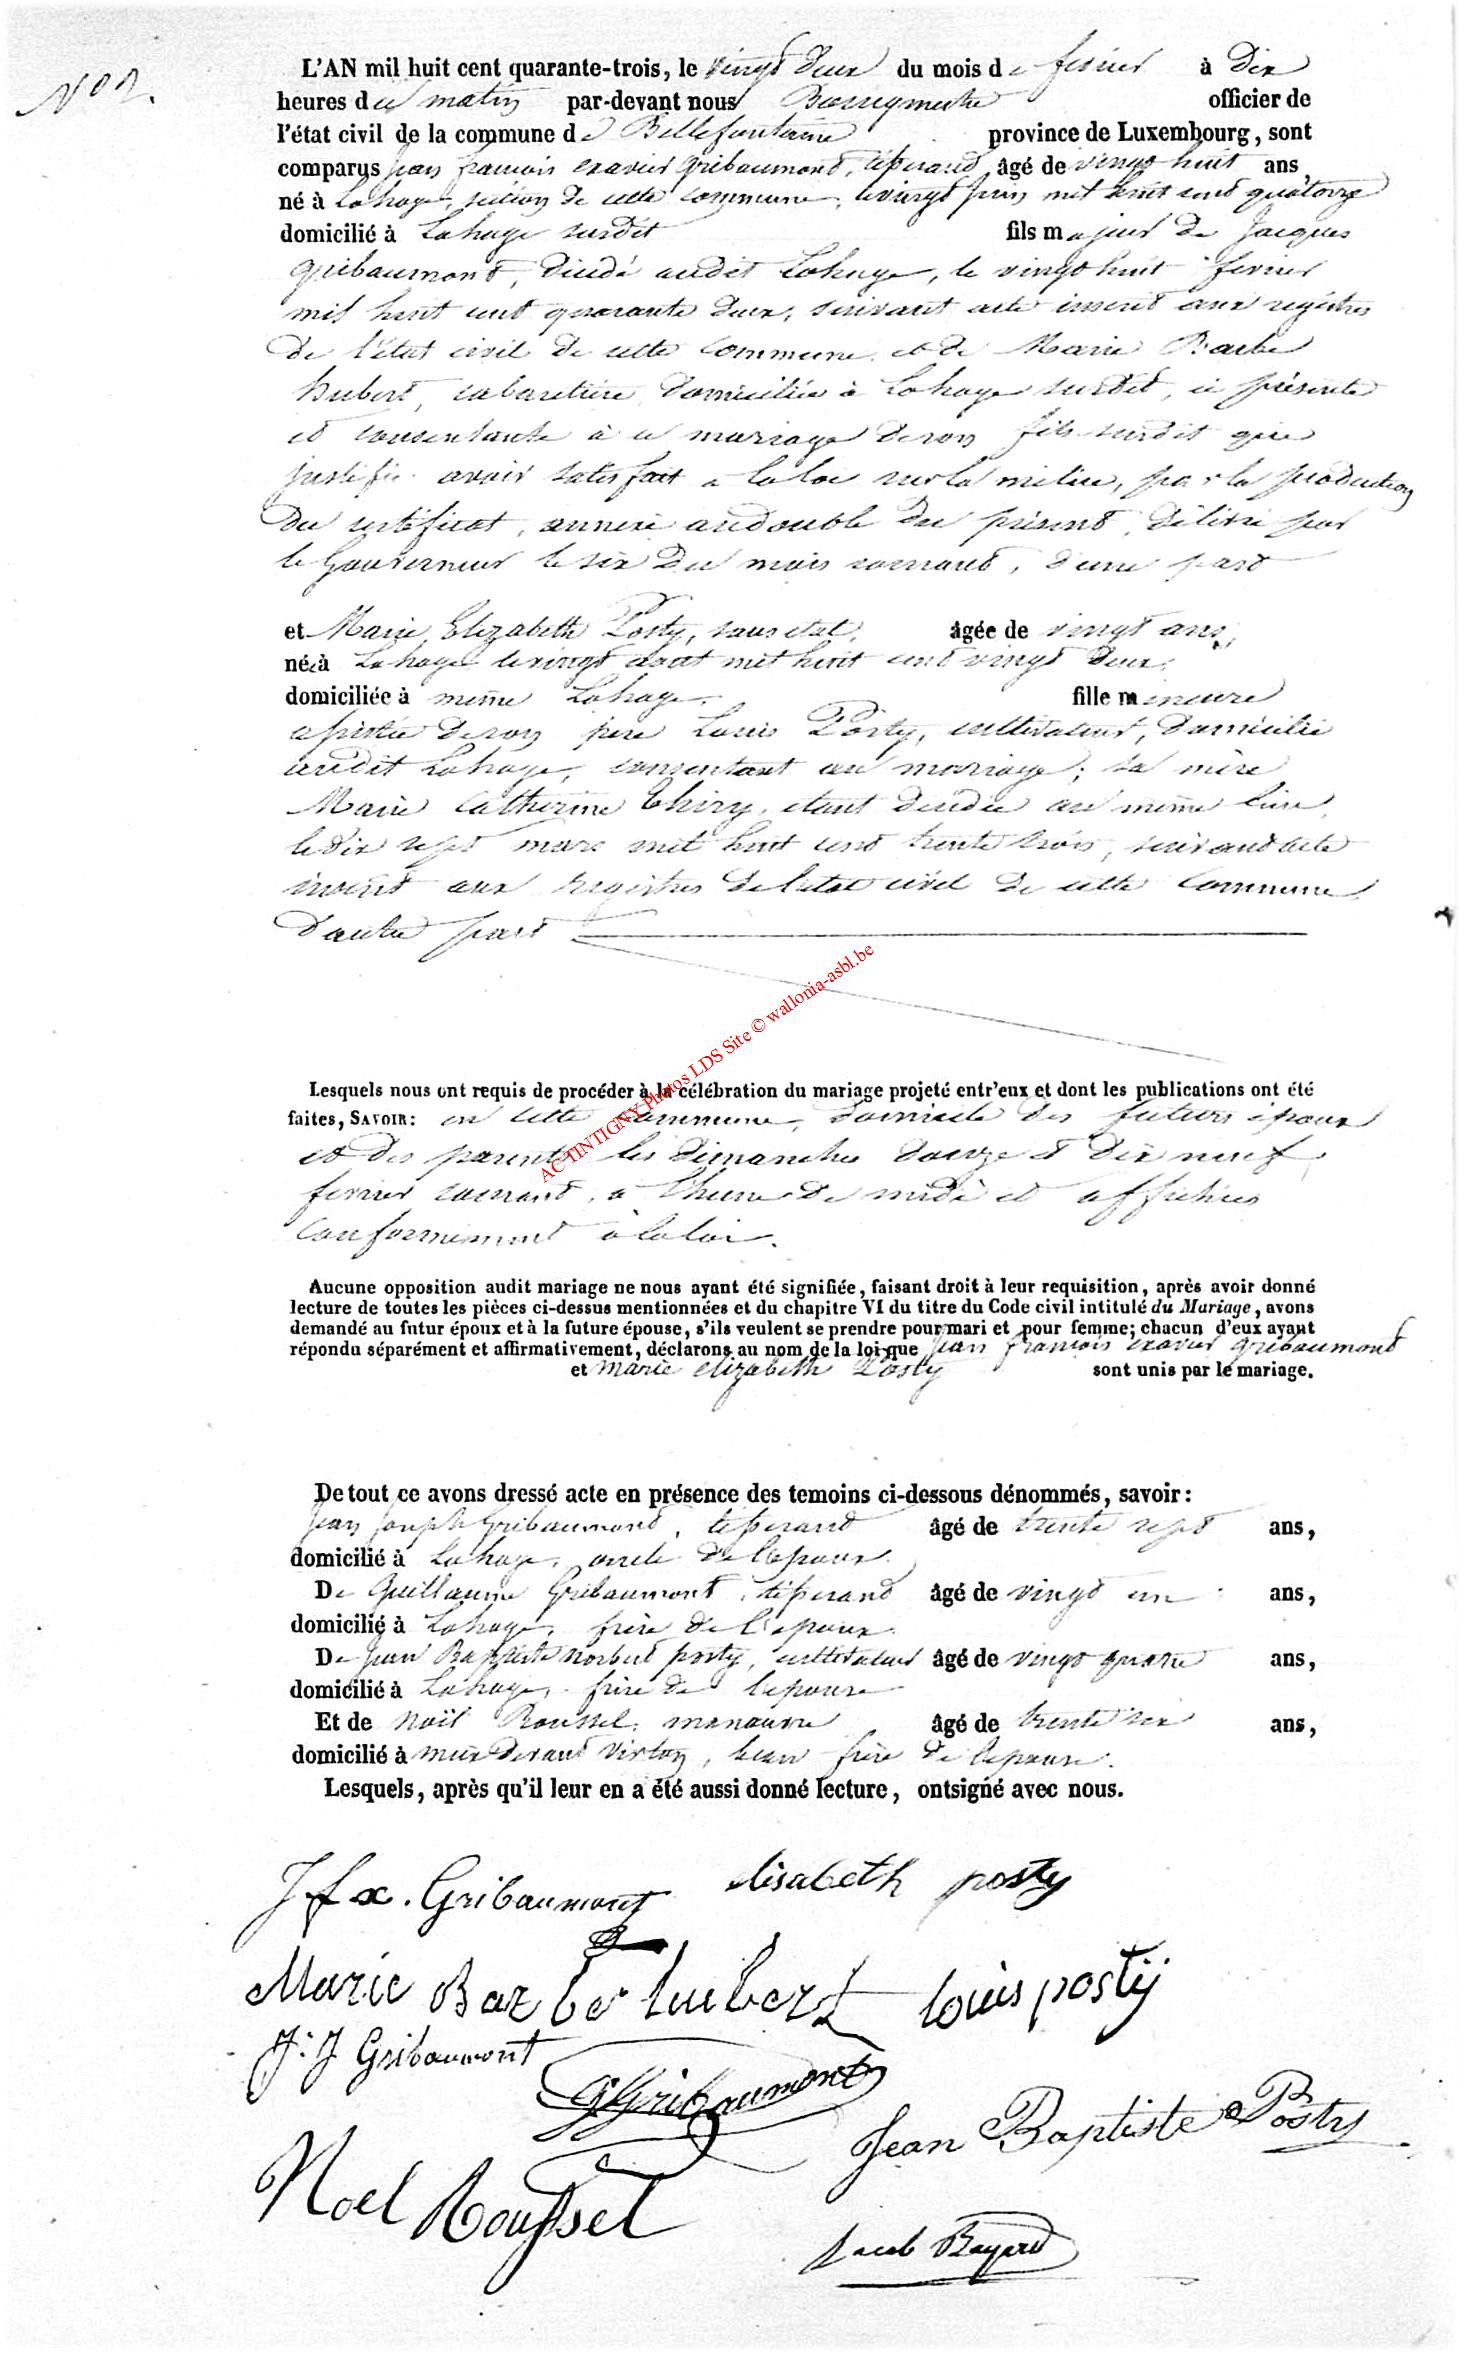 N° 2.
L'AN mil huit cent quarante-trois, le vingt deux du mois de fevrier à dix
heures du matin par-devant nous Bourgmestre officier de
l'état civil de la commune de Bellefontaine province de Luxembourg, sont
comparus jean francois exavier Gribaumont, tisserand, âgé de vingt huit ans,
né à Lahage, section de cette commune, le vingt juin mil huit cent quatorze
domicilié à Lahage susdit fils majeur de Jacques
Gribaumont, décédé audit Lahage, le vingt huit fevrier
mil huit cent quarante deux, suivant acte inscrit aux registres
de l'état civil de cette commune et de Marie Barbe
hubert, cabaretière, domiciliée à Lahage susdit, ici présente
et consentante à ce mariage de son fils susdit qui
justifie avoir satisfait a la loi sur la milice, par la production
du certificat, annexé au double du présent, délivré par
le Gouverneur le six du mois courant, d'une part
et Marie Elizabeth Posty, sans etat, âgée de vingt ans,
née à Lahage le vingt aout mil huit cent vingt deux,
domiciliée à même Lahage, fille mineure
assistée de son pere Louis Posty, cultivateur, domicilié
audit Lahage, consentant au mariage; sa mère
Marie Catherine Thiry, etant décédée au même lieu,
le dix sept mars mil huit cent trente trois, suivant acte
inscrit aux registres de l'etat civil de cette commune
d'autre part
Lesquels nous ont requis de procéder à la célébration du mariage projeté entr'eux et dont les publications ont été
faites, SAVOIR: en cette commune, domicile des futurs époux
et des parents les dimanches douze et dix neuf
fevrier courant, a l'heure de midi et affichées
conformément à la loi.
Aucune opposition audit mariage ne nous ayant été signifiée, faisant droit à leur requisition, après avoir donné
lecture de toutes les pièces ci-dessus mentionnées et du chapitre VI du titre du Code civil intitulé du Mariage, avons
demandé au futur époux et à la future épouse, s'ils veulent se prendre pour mari et pour femme; chacun d'eux ayant
répondu séparément et affirmativement, déclarons au nom de la loi que jean francois exavier Gribaumont
et marie elizabeth Posty sont unis par le mariage.
De tout ce avons dressé acte en présence des temoins ci-dessous dénommés, savoir:
jean joseph Gribaumont, tisserand âgé de trente sept ans,
domicilié à Lahage, oncle de l'epoux.
De Guillaume Gribaumont, tisserand âgé de vingt un ans,
domicilié à Lahage, frère de l'epoux.
De jean Baptiste norbert posty, cultivateur âgé de vingt quatre ans,
domicilié à Lahage, frère de l'epouse
Et de Noël Roussel, manoeuvre âgé de trente six ans,
domicilié à meix devant virton, beau frère de l'epouse.
Lesquels, après qu'il leur en a été aussi donné lecture, ont signé avec nous.
J f x. Gribaumont elisabeth posty
Marie Barbe hubert louis posty
J. J Gribaumont
G Gribaumont
Jean Baptiste Posty
Noel Roussel
Jacob Bayard
AC TINTIGNY Photos LDS Site © wallonia-asbl.be